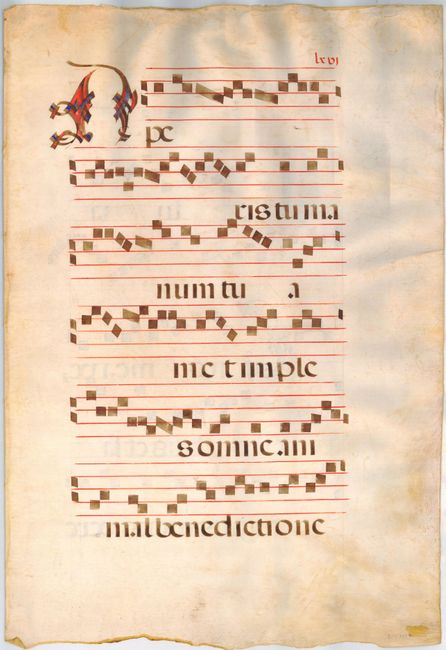 lxvi
Ape
ris tu ma
num tu a
m et imple
s omne ani
mal benedictione